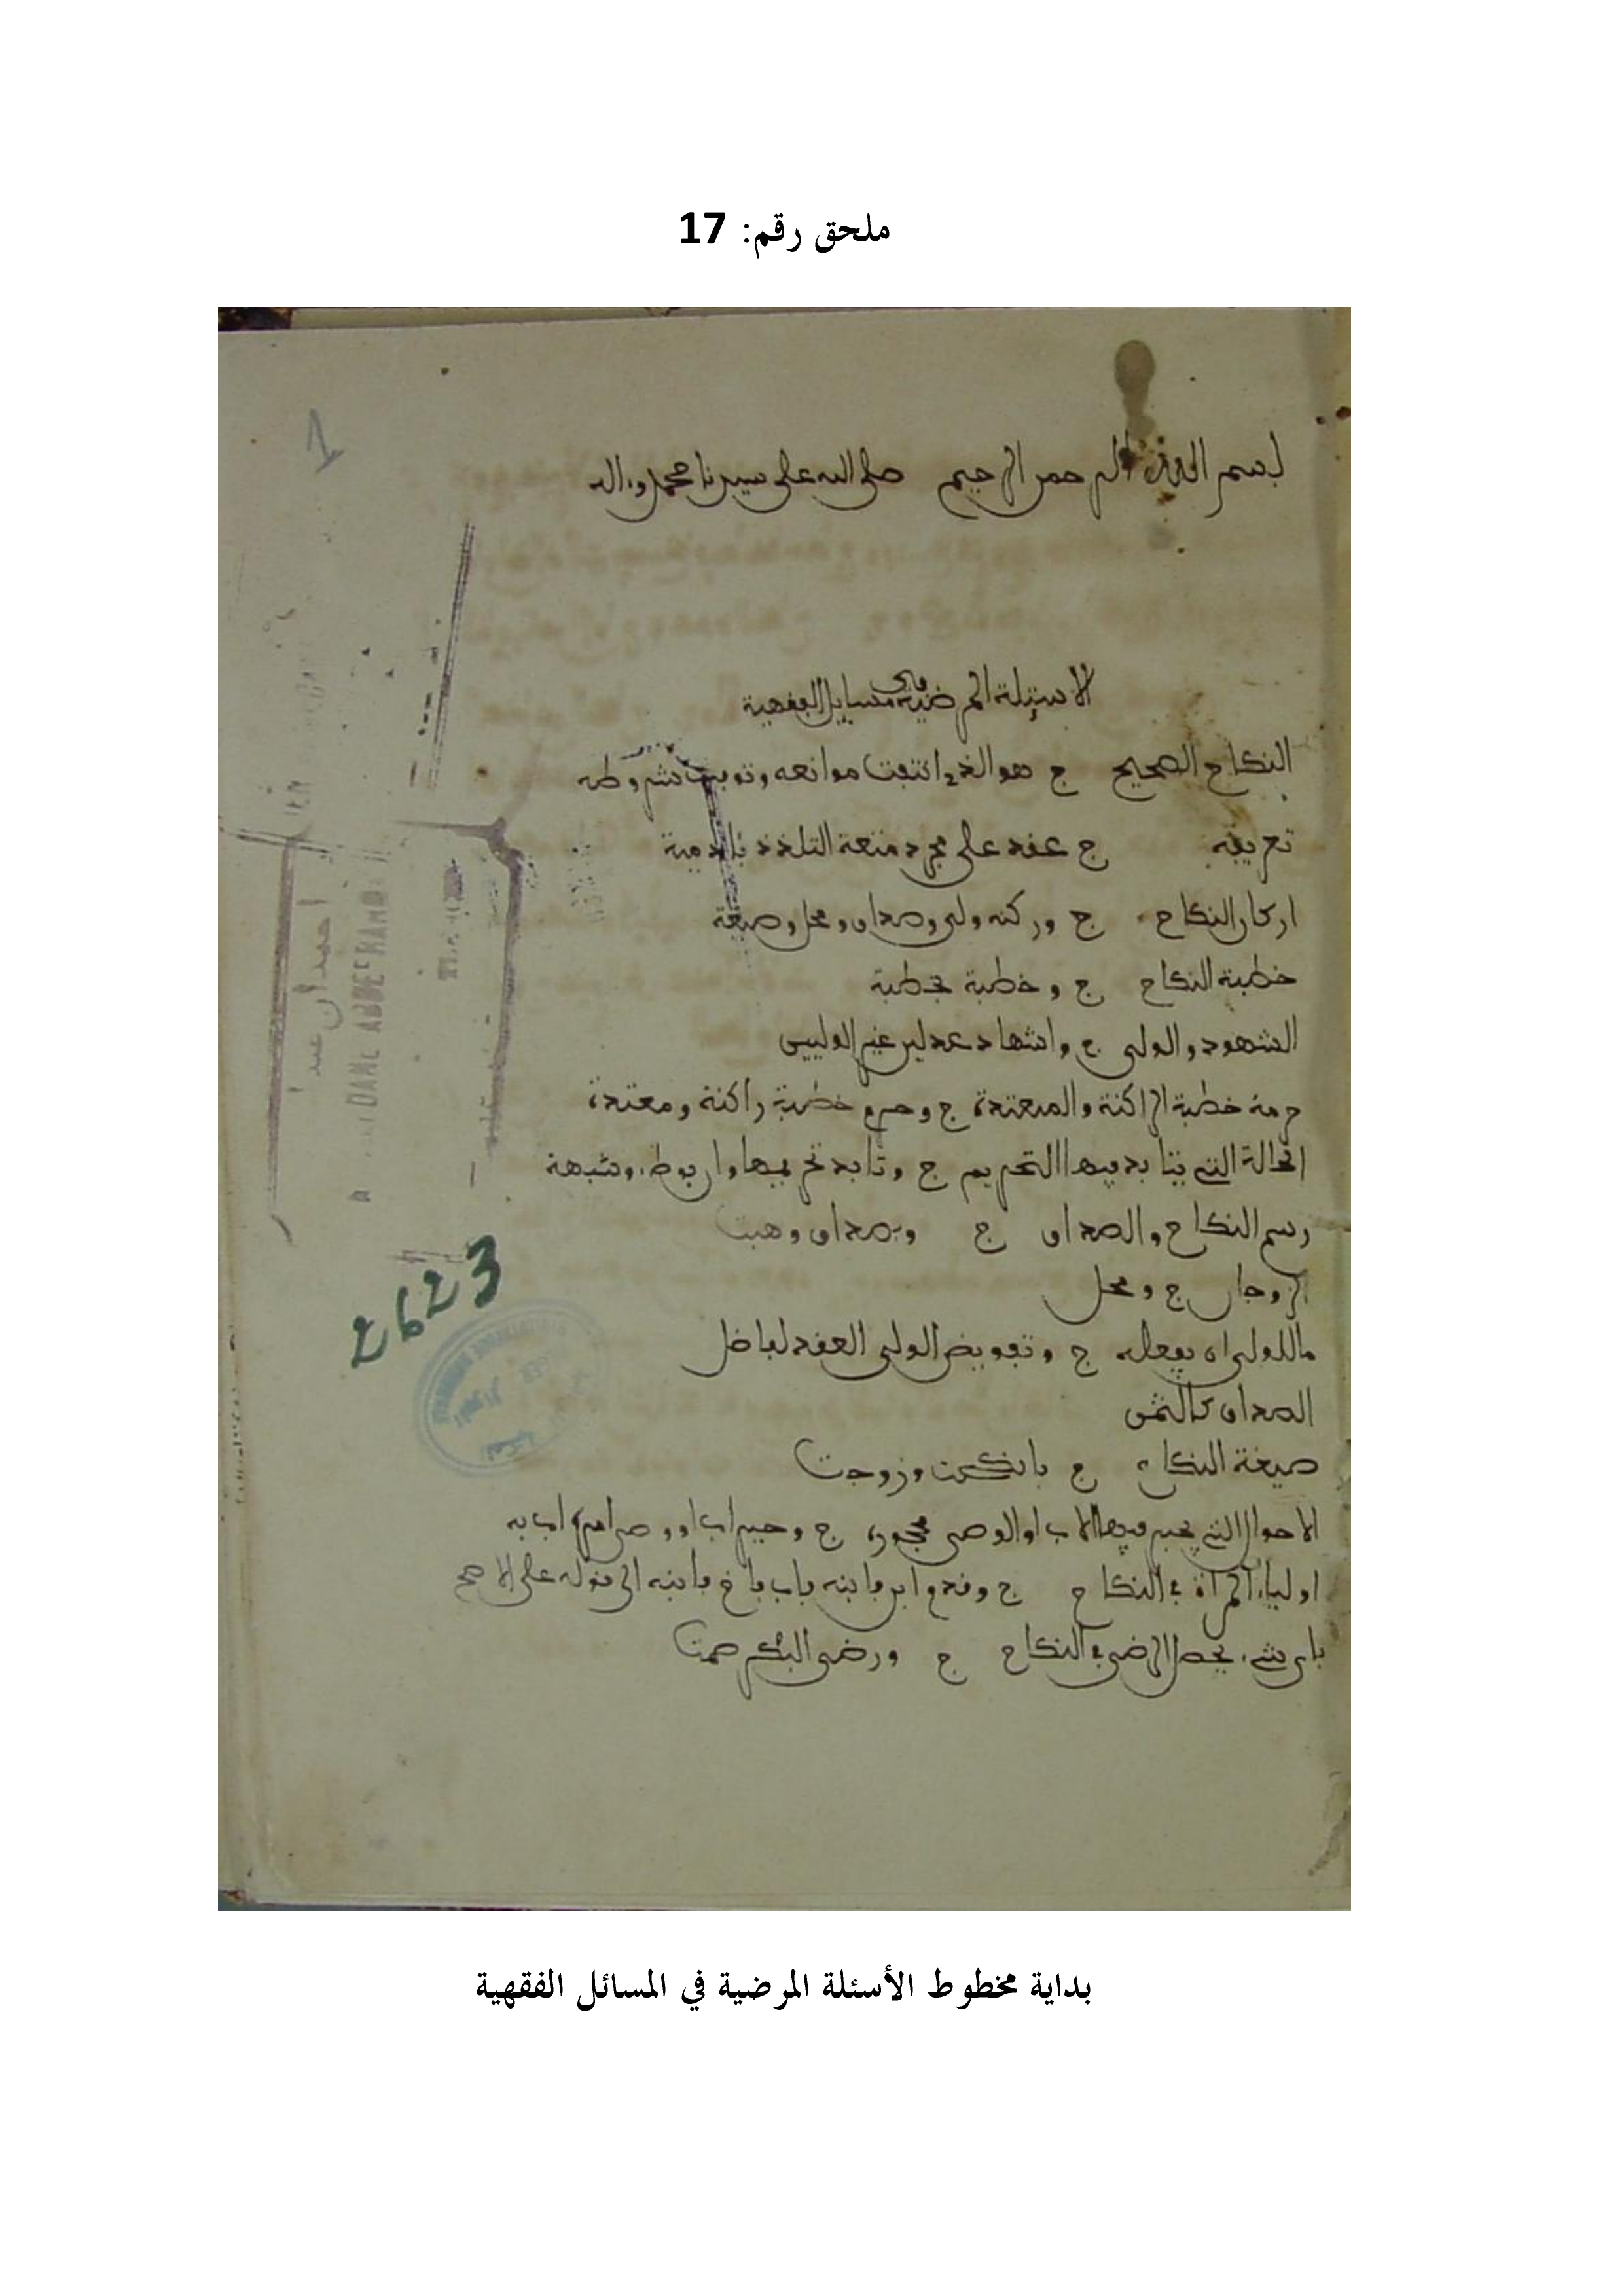 ملحق رقم: 17
1
بسم الله الرحمن الرحيم صلى الله على سيدنا محمد وءاله
الاسئلة المرضية في مسايل الفقهية
النكاح الصحيح ج هو الذي انتفت موانعه وتوفرت شروطه
تعريفه ج عقد على مجرد متعة التلذذ بئادمية
اركان النكاح ج وركنه ولي وصداق ومحل وصيغة
خطبة النكاح ج وخطبة بخطبة
الشهود والولي ج واشهاد عدلين غير الوليين
حرمة خطبة الراكنة والمعتدة ج وحرم خطبة راكنة ومعتدة
الحالة التي يتابد فيها التحريم ج وتابد تحريمها وان بوطء وشبهة
رسم النكاح والصداق ج وبصداق وهبت
الزوجان ج ومحل
ماللولي ان يفعله ج وتفويض الولي العقد لفاضل
الصداق كالثمن
صيغة النكاح ج بانكحت وزوجت
الاحوال التي يجبر فيها الاب او الوصي محجوره ج وجبر اب ووصي امره اب به
اولياء المراة في النكاح ج وقدم ابن فابنه فاب فاخ فابنه الى قوله على الاصح
باي شيء يحصل الرضى في النكاح ج ورضى البكر صمت
DAME ABDERRAHM
2623
بداية مخطوط الأسئلة المرضية في المسائل الفقهية